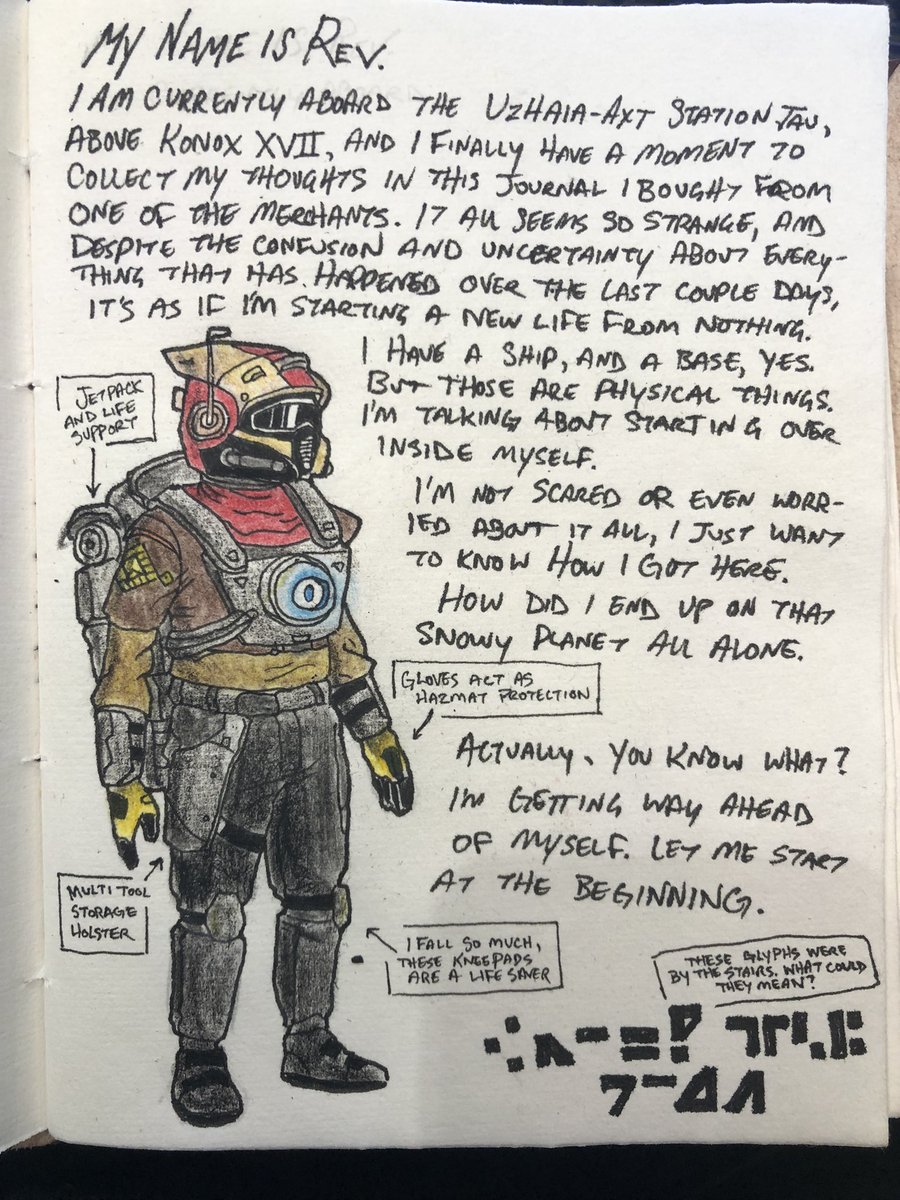 MY NAME IS REV.
I AM CURRENTLY ABOARD THE UZHAIA-AXT STATION TAU,
ABOVE KONOX XVII, AND I FINALLY HAVE A MOMENT TO
COLLECT MY THOUGHTS IN THIS JOURNAL I BOUGHT FROM
ONE OF THE MERCHANTS. IT ALL SEEMS SO STRANGE, AND
DESPITE THE CONFUSION AND UNCERTAINTY ABOUT EVERY-
THING THAT HAS HAPPENED OVER THE LAST COUPLE DAYS,
IT'S AS IF I'M STARTING A NEW LIFE FROM NOTHING.
I HAVE A SHIP, AND A BASE, YES.
BUT THOSE ARE PHYSICAL THINGS.
I'M TALKING ABOUT STARTING OVER
INSIDE MYSELF.
I'M NOT SCARED OR EVEN WORR-
IED ABOUT IT ALL, I JUST WANT
TO KNOW HOW I GOT HERE.
HOW DID I END UP ON THAT
SNOWY PLANET ALL ALONE.
JETPACK
AND LIFE
SUPPORT
GLOVES ACT AS
HAZMAT PROTECTION
ACTUALLY, YOU KNOW WHAT?
I'M GETTING WAY AHEAD
OF MYSELF. LET ME START
AT THE BEGINNING.
MULTI TOOL
STORAGE
HOLSTER
I FALL SO MUCH,
THESE KNEEPADS
ARE A LIFE SAVER
THESE GLYPHS WERE
BY THE STAIRS. WHAT COULD
THEY MEAN?